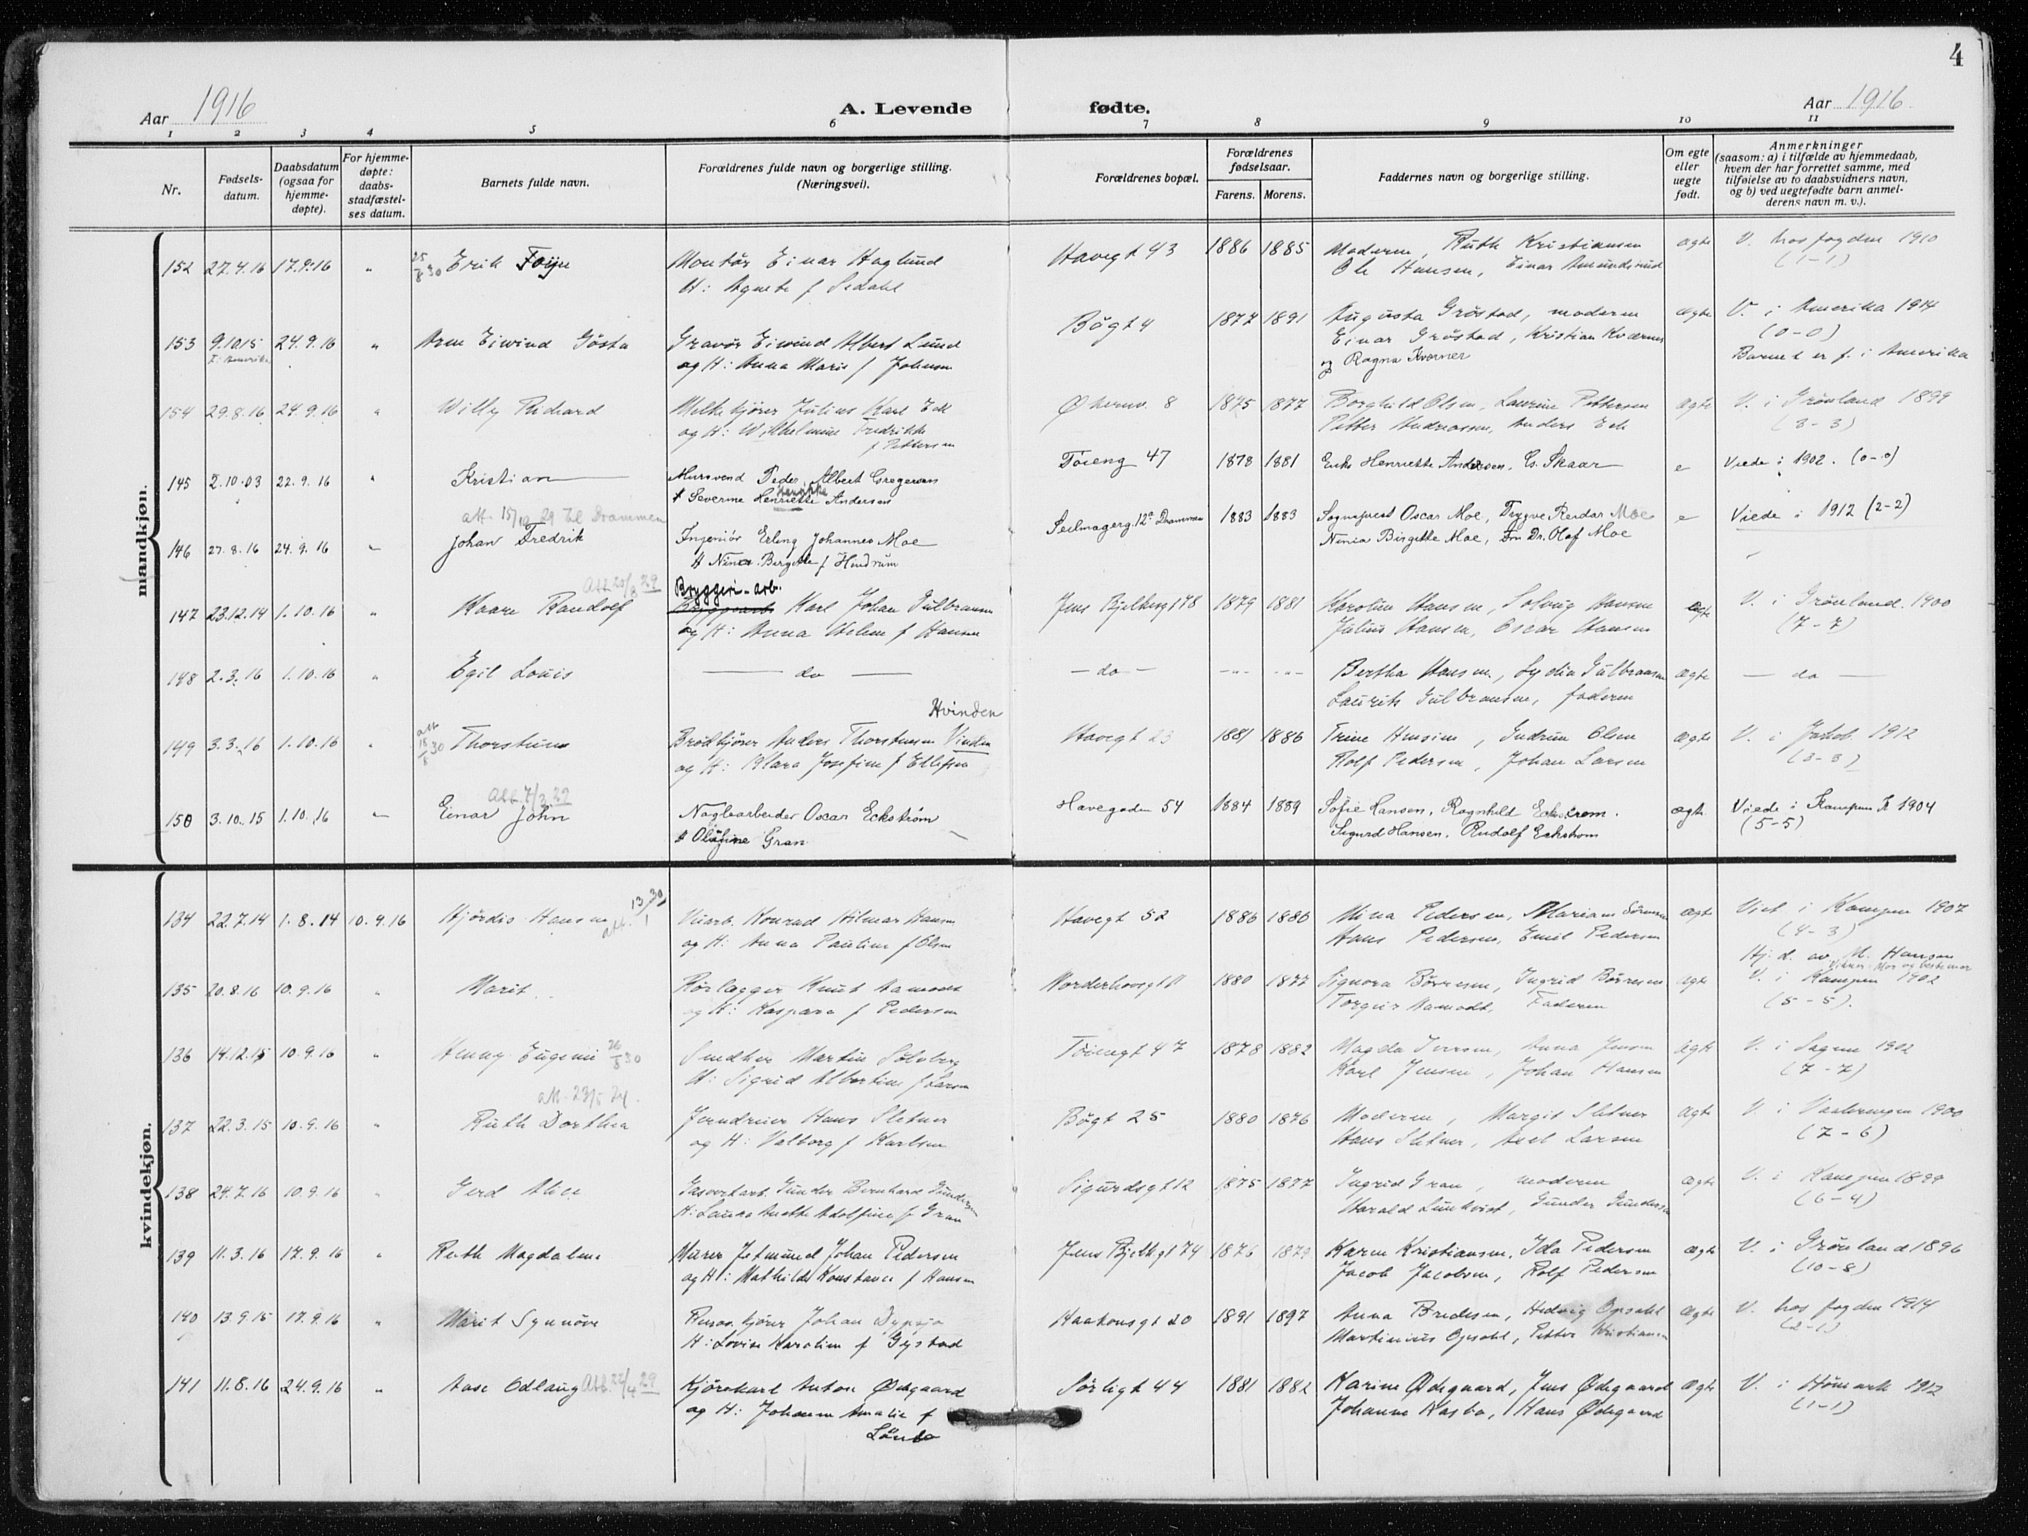 4
Aar 1916
A. Levende fødte.
Aar 1916
1 2 3 4 5 6 7 8 9 10 11
Nr.
Fødsels-
datum.
Daabsdatum
(ogsaa for
hjemme-
døpte).
For hjemme-
døpte:
daabs-
stadfæstel-
ses datum.
Barnets fulde navn.
Forældrenes fulde navn og borgerlige stilling.
(Næringsvei).
Forældrenes bopæl.
Forældrenes
fødselsaar.
Farens. Morens.
Faddernes navn og borgerlige stilling.
Om egte
eller
uegte
født.
Anmerkninger
(saasom: a) i tilfælde av hjemmedaab,
hvem der har forrettet samme, med
tilføielse av to daabsvidners navn,
og b) ved uegtefødte barn anmel-
derens navn m. v.).
mandkjøn.
152 27.4.16 17.9.16 " 25/8 30 Erik Foyn Montør Einar Haglund Havegt 43 1886 1885 Moderen, Ruth Kristiansen ægte V. hos fogden 1910
H: Agnete f Sedahl Ole Hansen, Einar Amundsrud (1-1)
153 9.10.15 24.9.16 " Arne Eivind Gösta Gravør Eivind Albert Lund Bøgt 4 1877 1891 Augusta Grøstad, moderen ægte V. i Amerika 1914
f. i Amerika og H: Anna Marie f Johnsen Einar Grøstad, Kristian Kværner (0-0)
og Ragna Kverner Barnet er f. i Amerika
154 29.8.16 24.9.16 " Willy Richard Melkekjører Julius Karl Eek Økernv. 8 1875 1877 Borghild Olsen, Laurine Pettersen ægte V. i Grønland 1899
og H: Wilhelmine Fredrikke Petter Andreassen, Anders Eek (3-3)
f Pettersen
145 2.10.03 22.9.16 " Kristian Mursvend Peder Albert Gregersen Tøieng 47 1878 1881 Henriette Andersen, Skaar e Viede i 1902. (0-0)
& Severine Henriette Andersen
att. 15/10 29 til Drammen
146 27.8.16 24.9.16 " Johan Fredrik Ingeniør Erling Johannes Moe Seilmagerg. 12a Drammen 1883 1883 Sogneprest Oscar Moe, Trygve Reidar Moe e Viede i 1912 (2-2)
& Ninea Birgitte f Hindrum Ninia Birgitte Moe, Fru Dr. Olaf Moe
Bryggeri-arb.
147 23.12.14 1.10.16 " Kaare Randolf Karl Johan Gulbransen Jens Bjelkesgt 78 1879 1881 Karoline Hansen, Solveig Hansen ægte V. i Grønland 1900
og H: Anna Helene f Hansen Julius Hansen, Oscar Hansen (7-7)
148 2.3.16 1.10.16 " Egil Louis — do — - do - Bertha Hansen, Lydia Gulbransen ægte — do —
Laurits Gulbransen, faderen
Hvinden
149 3.3.16 1.10.16 " att 18/8 30 Thorstein Brødkjører Anders Thorstensen Vinden Havegt 23 1881 1886 Trine Hansen, Gudrun Olsen ægte V. i Jakob. 1912
og H: Klara Josefine f Ellefsen Rolf Pedersen, Johan Larsen (3-3)
Att. 7/2 29
150 3.10.15 1.10.16 " Einar John Naglearbeider Oscar Eckstrøm Havegaden 54 1884 1889 Sofie Hansen, Ragnhild Eckstrøm. ægte Viede i Kampen K 1904
& Olufine Gran Sigurd Hansen, Rudolf Eckstrøm (5-5)
kvindekjøn.
134 22.7.14 1.8.14 10.9.16 Hjørdis Hansen att. 13/1 30 Konrad Hilmar Hansen Havegt 52 1886 1886 Mina Pedersen, Mariane Sørensen ægte Viet i Kampen 1907
og H: Anna Pauline f Olsen Hans Pedersen, Emil Pedersen (4-3)
Hj.d. av M. Hansen
135 20.8.16 10.9.16 " Marit Rørlegger Knut Aamodt Norderhovsgt 1880 1877 Signora Børresen, Ingrid Børresen ægte V. i Kampen 1902
og H: Kaspara f Pedersen Torgeir Aamodt, Faderen (5-5).
136 14.12.15 10.9.16 " Henny Eugenie 26/8 30 Martin Solberg Tøiengt 47 1878 1882 Magda Iversen, Anna Jensen ægte V. i Sagene 1902
H: Sigrid Albertine f Larsen Karl Jensen, Johan Hansen (7-7)
att. 23/5 24.
137 22.3.15 10.9.16 " Ruth Dorthea Jerndreier Hans Sletner Bøgt 25 1880 1876 Moderen, Margit Sletner ægte V. i Vaalerengen 1900
og H: Valborg f Karlsen Hans Sletner, Axel Larsen (7-6)
138 24.7.16 10.9.16 " Gerd Alice Gasverkarb. Gunder Bernhard Gundersen Sigurdsgt 12 1875 1877 Ingrid Gran, moderen ægte V. i Kampen 1899
H: Laura Anette Adolfine f Gran Harald Lundkvist, Gunder Gundersen (6-4)
139 11.3.16 17.9.16 " Ruth Magdalene Murer Jetmund Johan Pedersen Jens Bjelkgt 74 1876 1879 Karen Kristiansen, Ida Pedersen ægte V. i Grønland 1896
og H: Mathilde Konstance f Hansen Jacob Jacobsen, Rolf Pedersen (10-8)
140 13.9.15 17.9.16 " Marit Synnøve Johan Dypsjø Haakonsgt 20 1891 1897 Anna Bredesen, Hedvig Opsahl ægte V. hos fogden 1914
H: Lovise Karoline f Gystad Martinius Opsahl, Petter Kristiansen (2-1)
141 11.8.16 24.9.16 " Aase Odlaug Att. 22/4 29 Kjørekarl Anton Ødegaard Sørligt 44 1881 1882 Karine Ødegaard, Jens Ødegaard ægte V. i Hømark 1912
og H: Johanne Amalie f Johanne Kasbo, Hans Ødegaard (1-1)